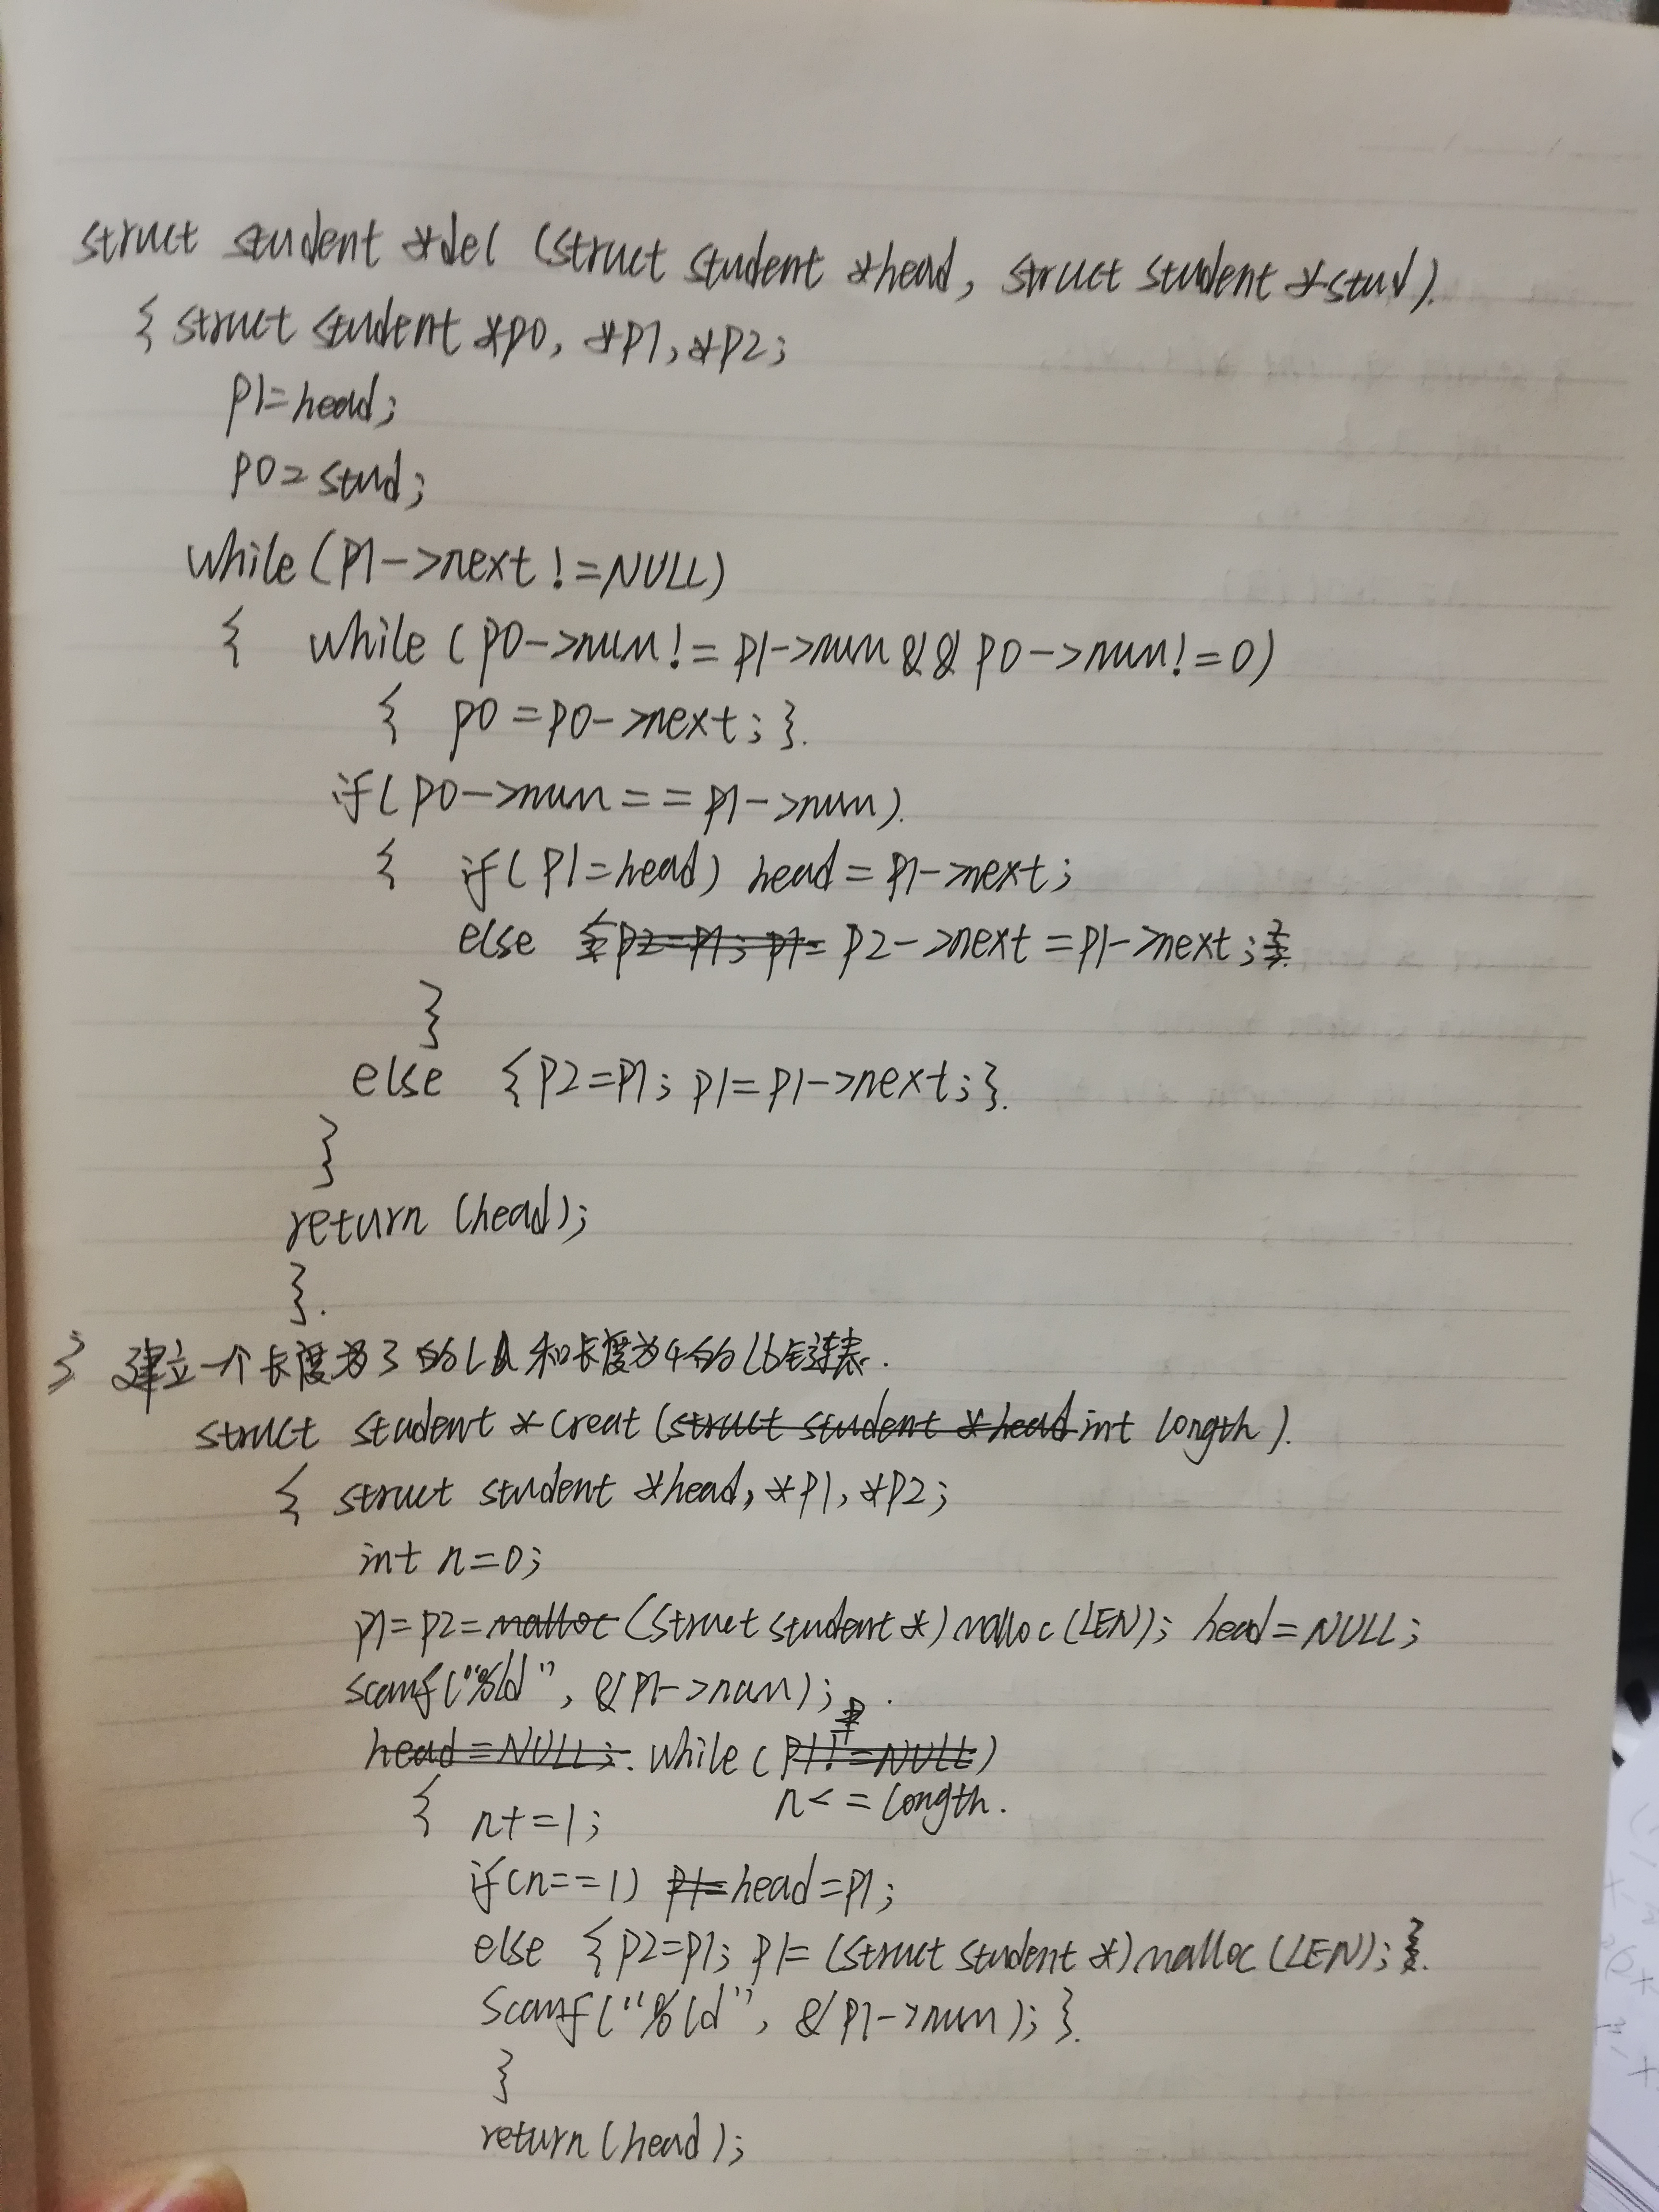 struct student *del (struct student *head, struct student *stud).
{ struct student *p0, *p1, *p2;
p1=head;
p0=stud;
while(p1->next!=NULL)
{ while (p0->num!=p1->num&&p0->num!=0)
{ p0=p0->next;}.
if(p0->num==p1->num).
{ if(p1=head) head=p1->next;
else {p2=p1; p1= p2->next=p1->next;}
}
else {p2=p1; p1=p1->next;}.
}
return (head);
}.
3 建立一个长度为3的LA和长度为4的Lb连表.
struct student *creat (struct student *head int length).
{ struct student *head, *p1, *p2;
int n=0;
p1=p2=malloc (struct student *)malloc(LEN); head=NULL;
scanf("%ld", &p1->num);
head=NULL; while (p1!=NULL)
n<=length.
{ n+=1;
if(n==1) p1=head=p1;
else {p2=p1; p1=(struct student *)malloc(LEN);}.
scanf("%ld", &p1->num);}.
}
return(head);